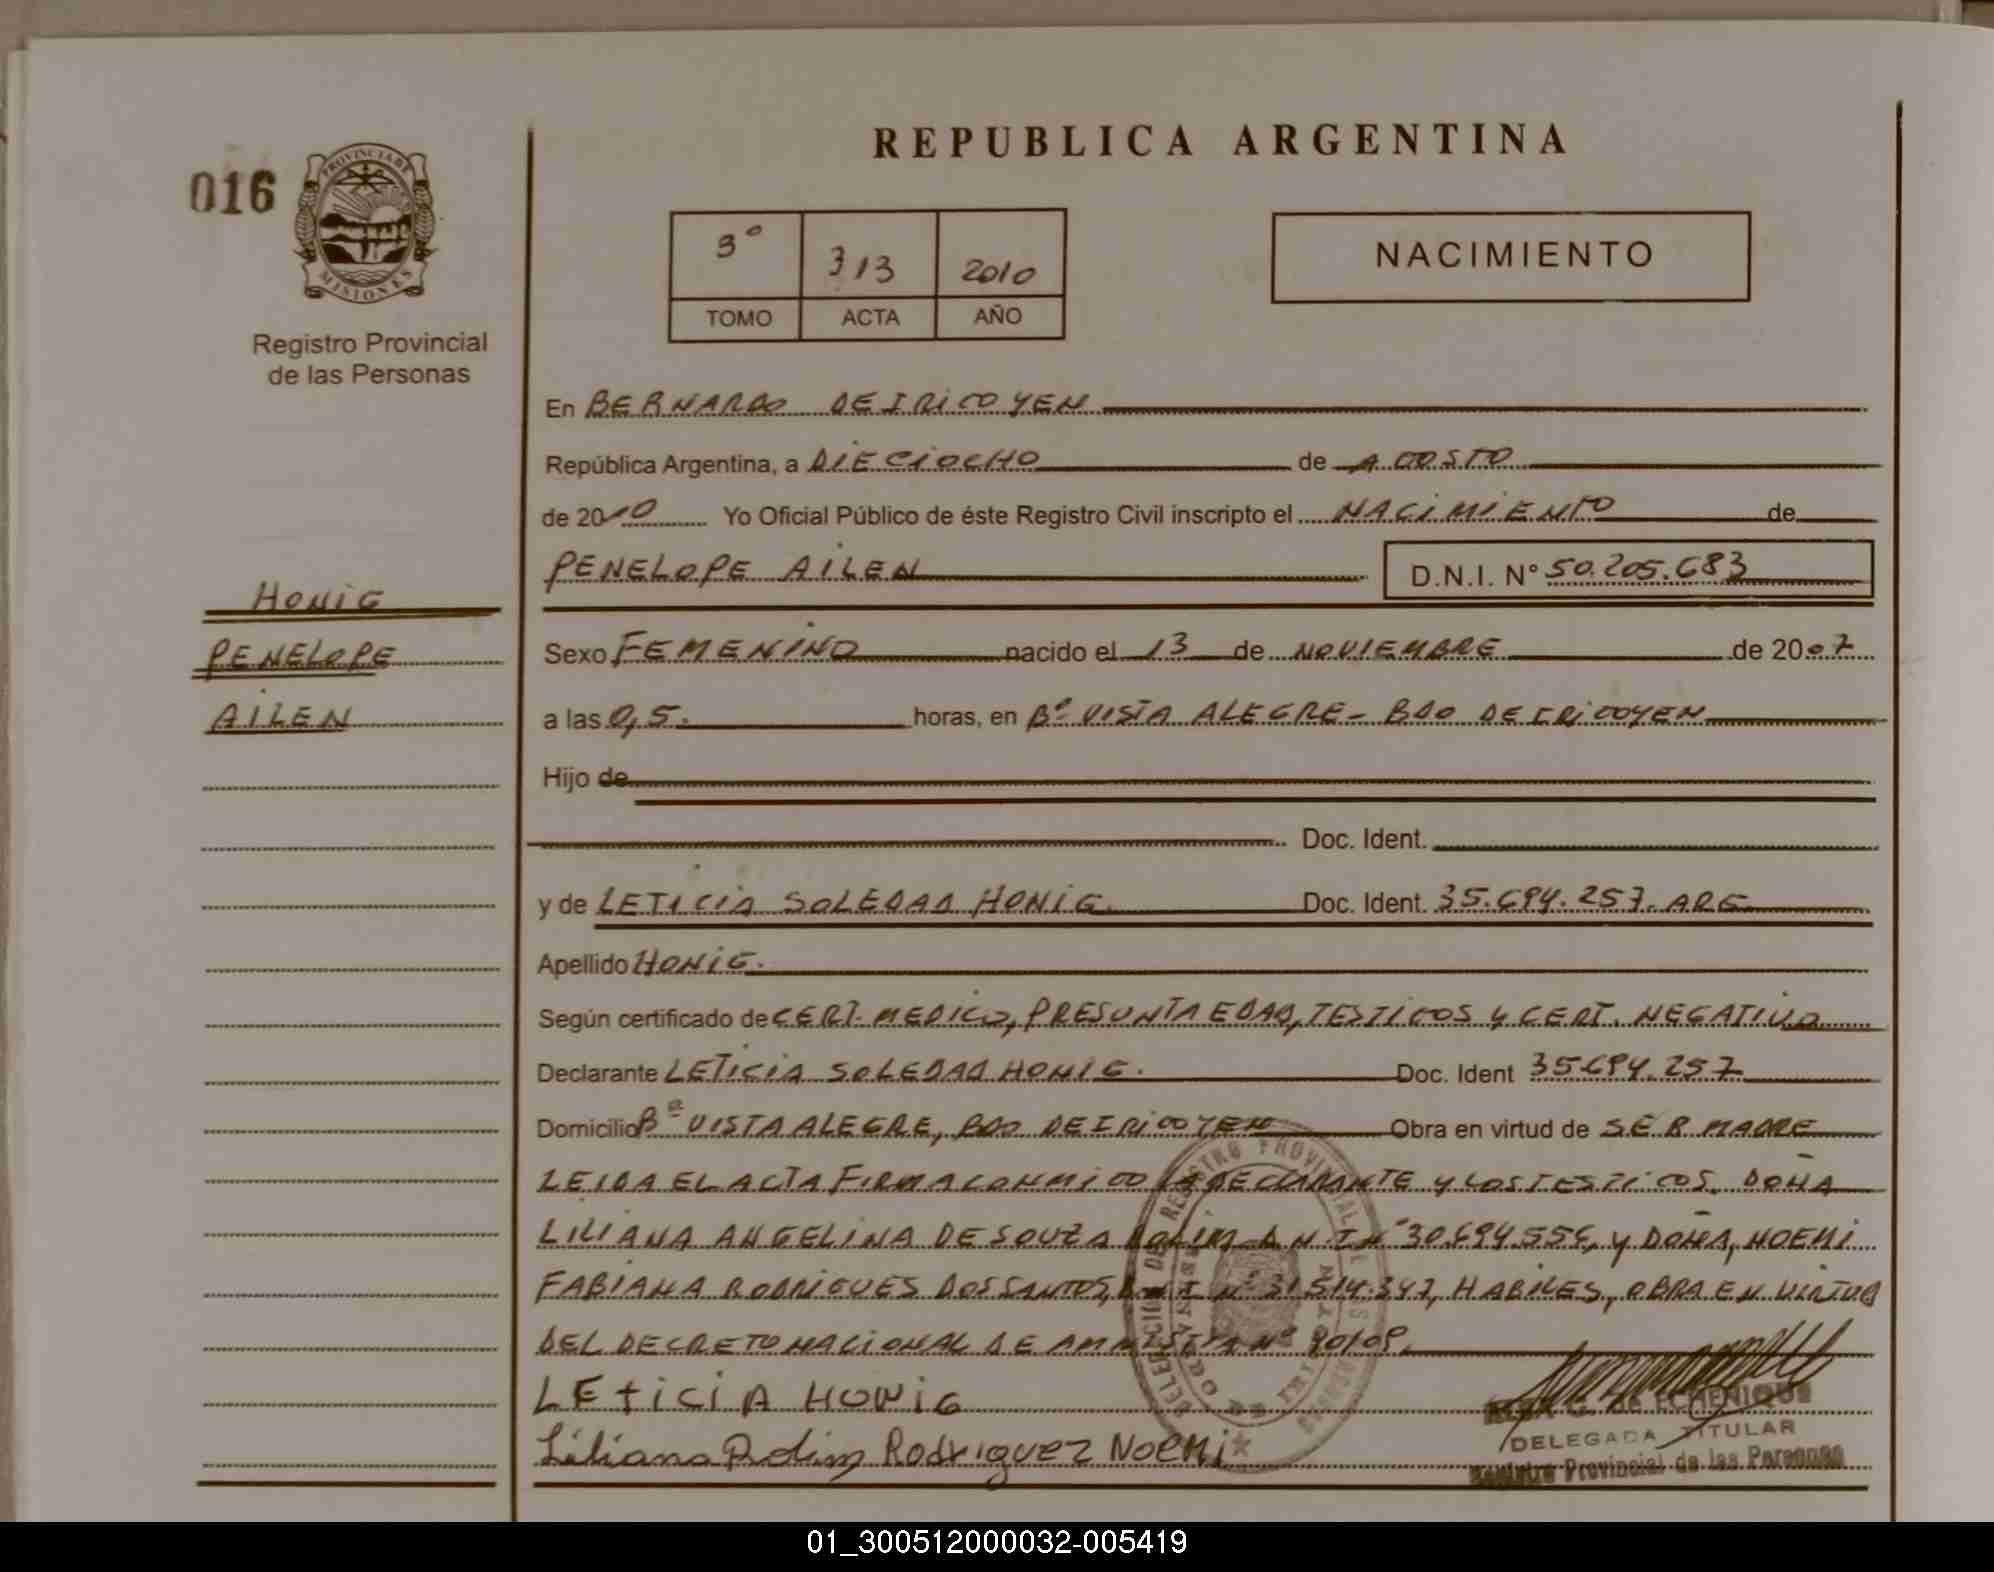 REPUBLICA ARGENTINA
016
PROVINCIA DE
MISIONES
Registro Provincial
de las Personas
3º 313 2010
TOMO ACTA AÑO
NACIMIENTO
En BERNARDO DE IRIGOYEN
República Argentina, a DIECIOCHO de AGOSTO
de 2010 Yo Oficial Público de éste Registro Civil inscripto el NACIMIENTO de
PENELOPE AILEN D.N.I. Nº 50.205.683
HONIG
PENELOPE
AILEN
Sexo FEMENINO nacido el 13 de NOVIEMBRE de 2007
a las 0,5. horas, en Bº VISTA ALEGRE - BDO DE IRIGOYEN
Hijo de
Doc. Ident.
y de LETICIA SOLEDAD HONIG. Doc. Ident. 35.694.257. ARG.
Apellido HONIG.
Según certificado de CERT. MEDICO, PRESUNTA EDAD, TESTIGOS Y CERT. NEGATIVO
Declarante LETICIA SOLEDAD HONIG. Doc. Ident 35694.257
Domicilio Bº VISTA ALEGRE, BDO DE IRIGOYEN Obra en virtud de SER MADRE
LEIDA EL ACTA FIRMA CONMIGO LA DECLARANTE Y LOS TESTIGOS. DOÑA
LILIANA ANGELINA DE SOUZA ROLIM D N I Nº 30.694.556, y DOÑA, NOEMI
FABIANA RODRIGUES DOS SANTOS, D N I Nº 31.514.347, HABILES, OBRA EN VIRTUD
DEL DECRETO NACIONAL DE AMNISTIA Nº 90/09.
LETICIA HONIG
Liliana Rolim Rodriguez NOEMI
DE ECHENIQUE
DELEGADA TITULAR
Registro Provincial de las Personas
01_300512000032-005419